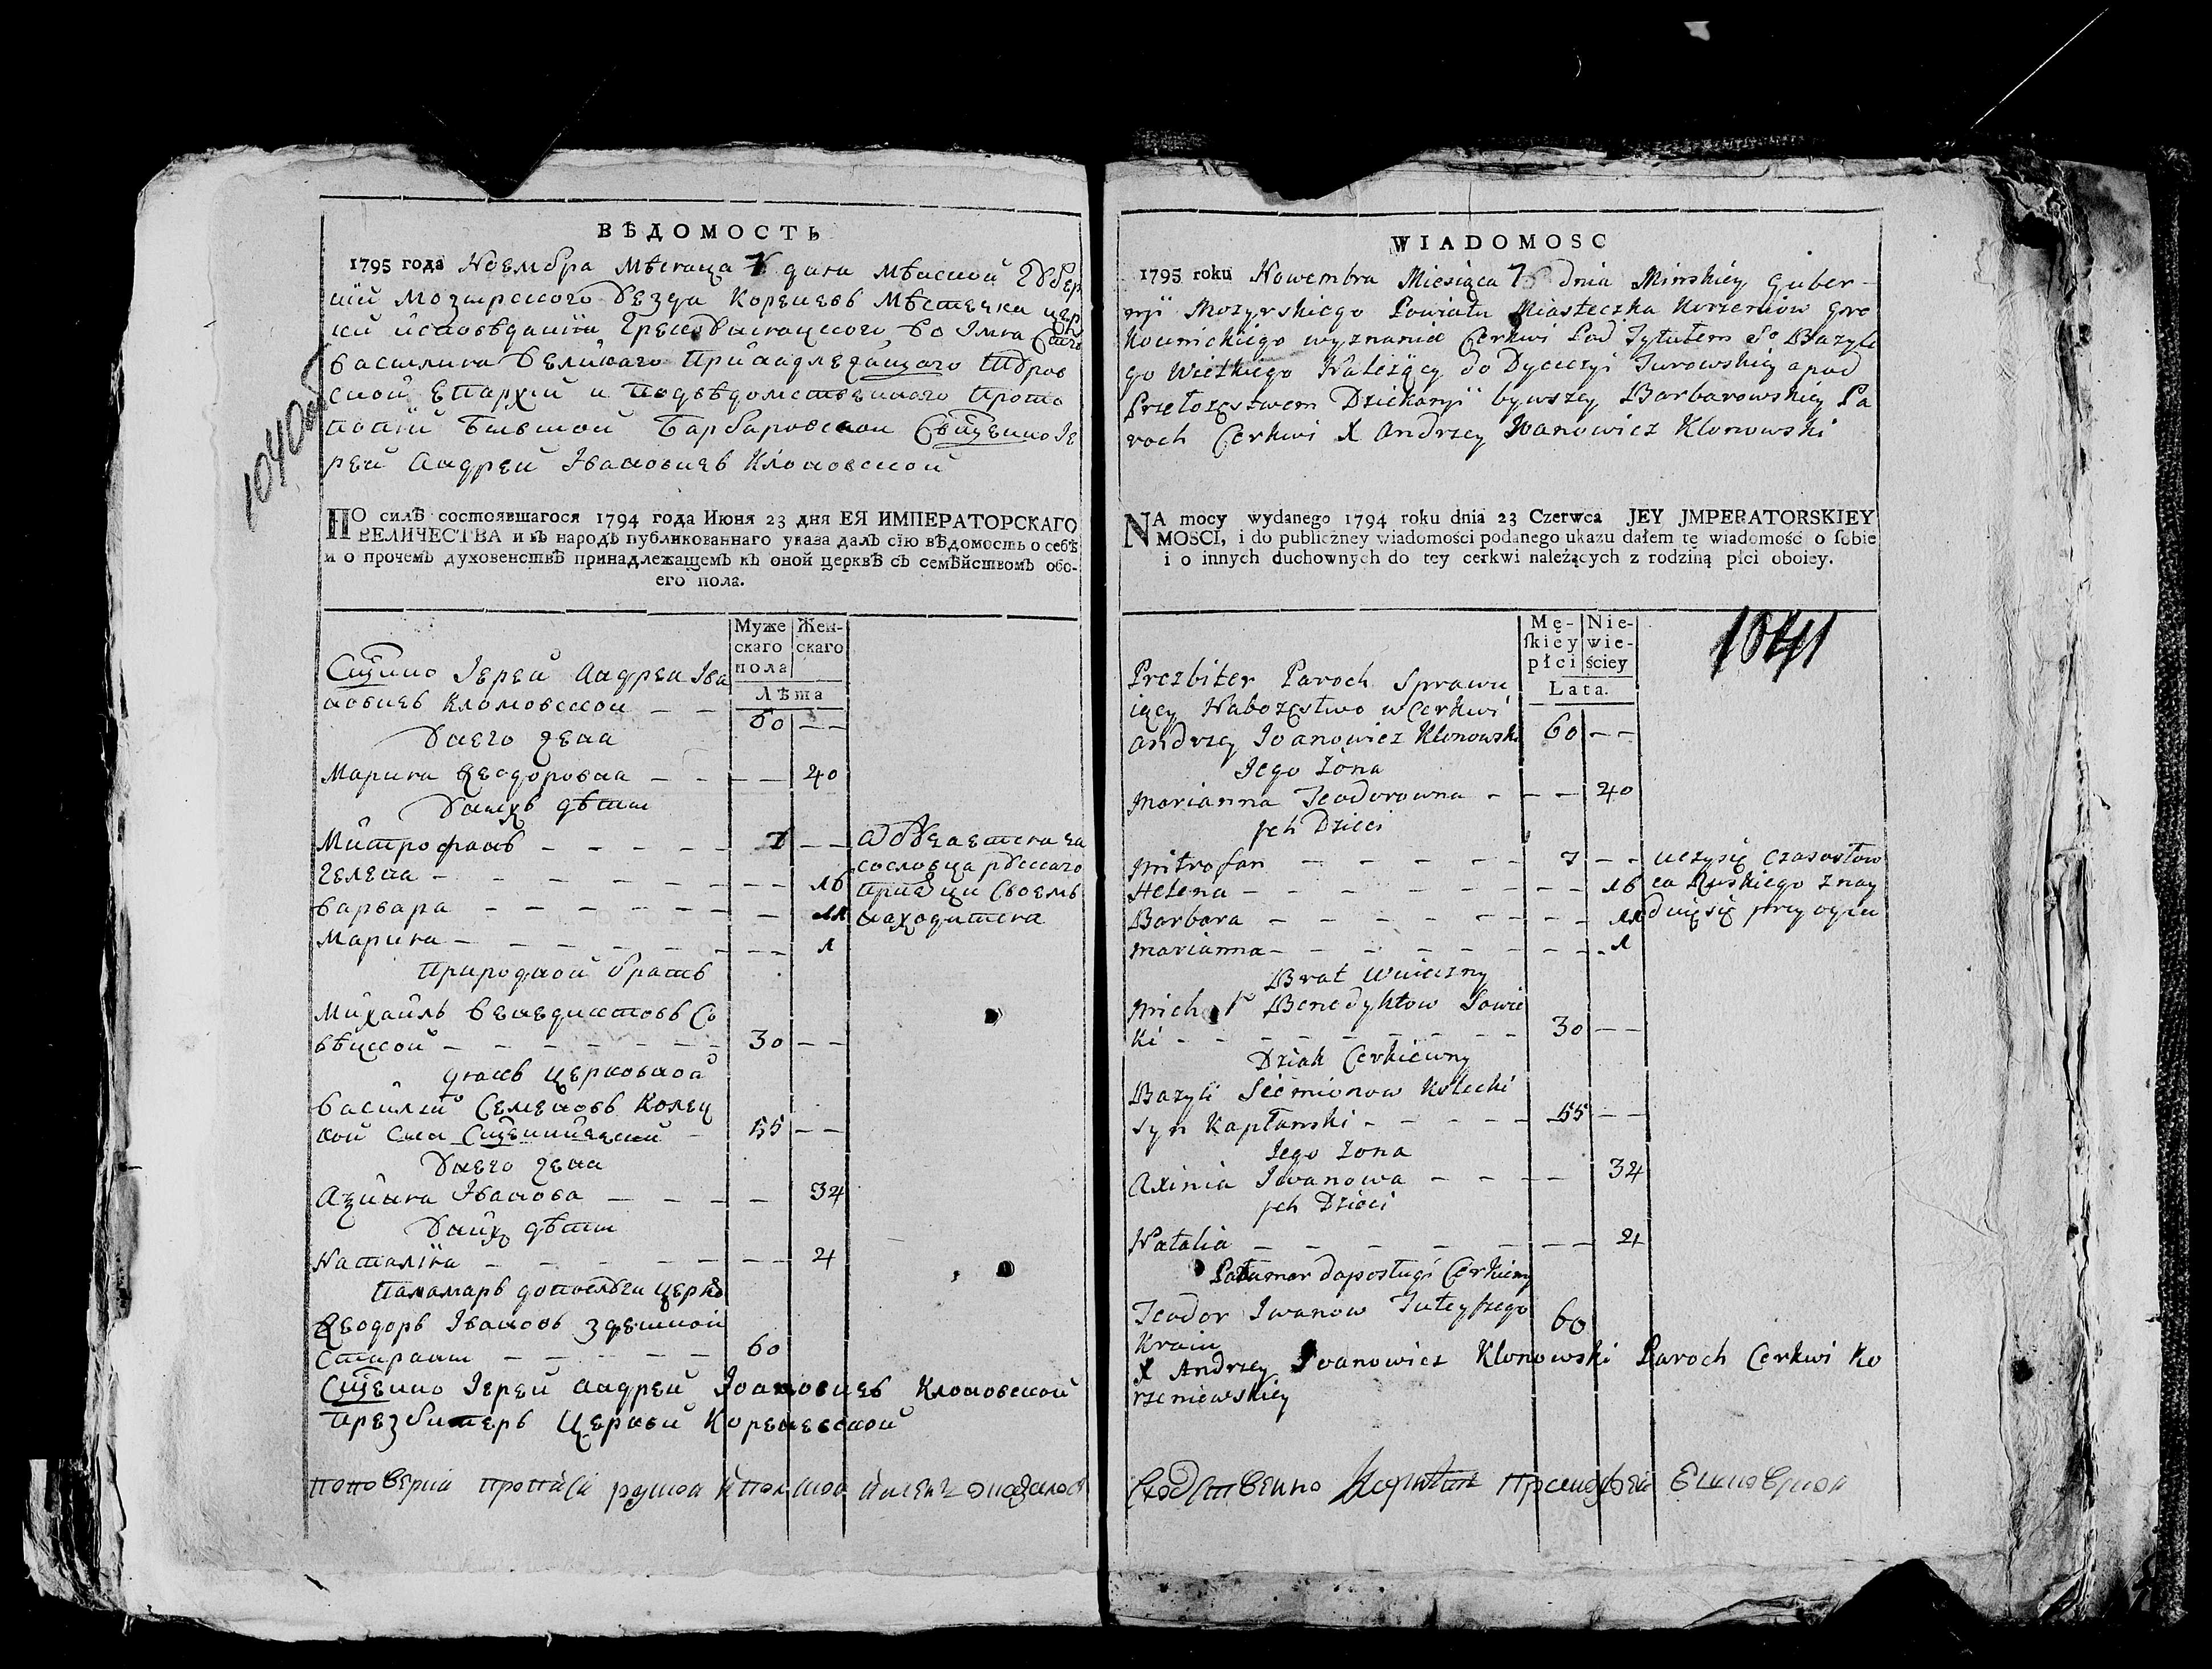 1040об
ВѢДОМОСТЬ
1795 года Ноембра Мѣсяца 7 дня Мѣнской Губер
нїи Мозырского уезда Кореневъ Мѣстечка цер
кви исповѣданїя Грекоунїацкого во Імя Стго
Василия Великаго Принадлежащаго Туров
ской Епархїи и Подвѣдомственного Прото
попїи Бывшой Барбаровской Сщенно Іе
рей Андрей Івановичъ Клоновской
ПО силѣ состоявшагося 1794 года Июня 23 дня ЕЯ ИМПЕРАТОРСКАГО
ВЕЛИЧЕСТВА и въ народъ публикованнаго указа далъ сїю вѣдомость о себѣ
и о прочемъ духовенствѣ принадлежащемъ къ оной церквѣ съ семѣйствомъ обо-
его пола.
Муже Жен-
скаго скаго
пола
Лѣта
Сщенно Іерей Андрей Іва
новичъ Клоновской — — 60 — —
Унего жена
Марина Ѳеодоровна — — — — 40
Унихъ дѣти
Митрофанъ — — — — — 7 — —
Гелена — — — — — — — — 16
Варвара — — — — — — — 11 находится
Марина — — — — — — — — 1
Природной братъ
Михаилъ Венедиктовъ Со
вѣцкой — — — — — — — 30 — —
дякъ церковной
Василий Семеновъ Колец
кой Сщеннической — 55 — —
Унего жена
Іванова — — — — 34
Унихъ дѣти
Наталїя — — — — — — — 4
Паламарь церко
Ѳеодоръ Івановъ здешной
— — — — — 60
Сщенно Іерей Андрей Іоановичъ Клоновской
Презбитеръ Церкви Кореневской
WIADOMOSC
1795 roku Nowembra Miesiąca 7 dnia Minskiey Guber-
nÿi Mozyrskiego Powiatu Miasteczka Korzeniow Gre
kounickiego wyznania Cerkwi Pod Tytułem So Bazyle
go Wielkiego Należący do Dyecezyi Turowskiey a pod
Przełozęstwem Dziekanÿi bywszey Barbarowskiey Pa
roch Cerkwi X Andrzey Iwanowicz Klonowski
NA mocy wydanego 1794 roku dnia 23 Czerwca JEY JMPERATORSKIEY
MOSCI, i do publiczney wiadomości podanego ukazu dałem tę wiadomość o sobie
i o innych duchownych do tey cerkwi należących z rodziną płci oboiey.
1041
Mę- Nie-
skiéy wie-
płci ściey
Lata.
Prezbiter Paroch Sprawu
iący Nabozęstwo w Cerkwi
Andrzey Ioanowicz Klonowski 60 — —
Iego Zona
Marianna Teodorowna - — — 40
Jch Dzieci
Mitrofan — — — — — 7 — — uczysię czasosłow
Helena — — — — — — — 16 ca Ruskiego znay
Barbara — — — — — — — 11 duię się przy oycu
Marianna — — — — — — — 1
Brat
Michał Benedyktow Sowie
ki — — — — — — — 30 — —
Dziak Cerkiewny
Bazyli Siemionow Kolecki
Syn Kapłanski — — — — — 55 — —
Iego Zona
Axinia Iwanowa — — — — 34
Jch Dzieci
Natalia — — — — — — — 4
Pałamar do posługi Cerkiewny
Teodor Iwanow Tuteyszego 60
Kraiu
X Andrzey Ioanowicz Klonowski Paroch Cerkwi Ko
rzeniewskiey